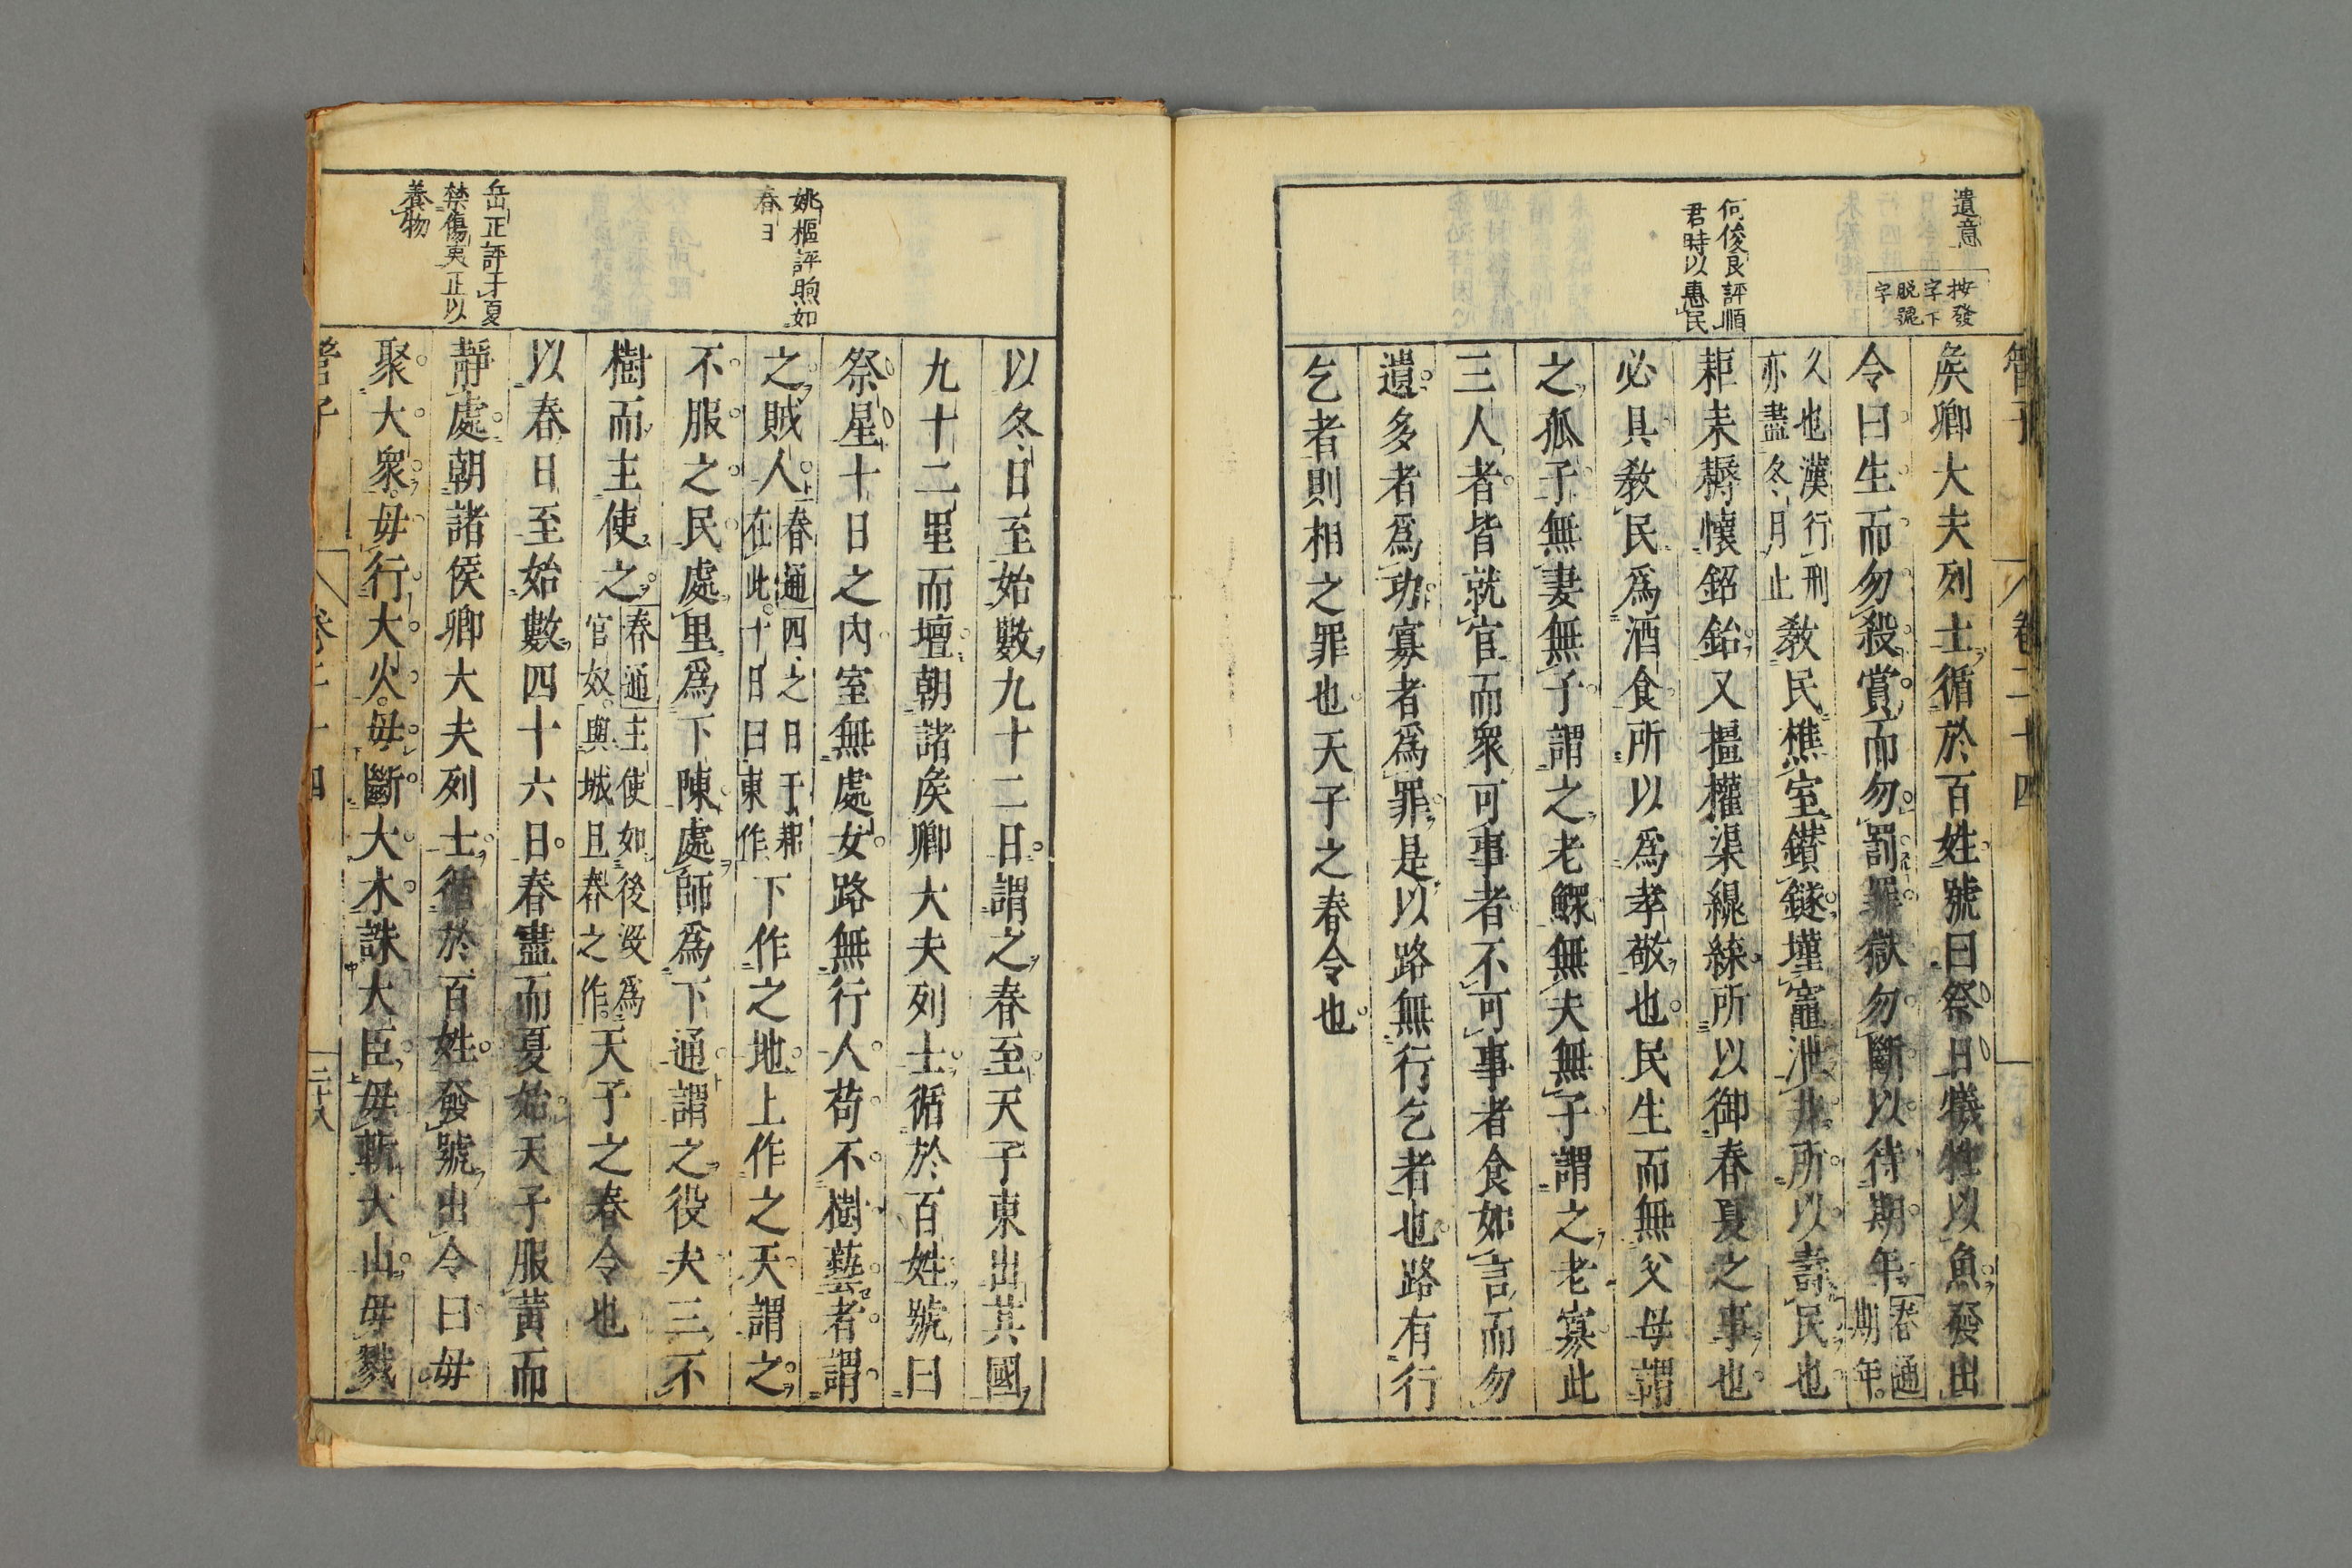 管子
卷二十四
遺意
按發
字下
脱號
字
何俊良評順
君時以惠民
矦卿大夫列士循於百姓號曰祭日犧牲以魚發出
令曰生而勿殺賞而勿罰罪獄勿斷以待期年春通
期年
久也漢行刑
亦盡冬月止
教民樵室鑚鐩墐竈泄井所以壽民也
耟耒耨懷鉊鈶又橿權渠繉緤所以御春夏之事也
必具教民爲酒食所以爲孝敬也民生而無父母謂
之孤子無妻無子謂之老鰥無夫無子謂之老寡此
三人者皆就官而衆可事者不可事者食如言而勿
遺多者爲功寡者爲罪是以路無行乞者也路有行
乞者則相之罪也天子之春令也
姚樞評煦如
春日
岳正評于夏
禁傷夷正以
養物
以冬日至始數九十二日謂之春至天子東出其國
九十二里而壇朝諸矦卿大夫列士循於百姓號曰
祭星十日之內室無處女路無行人苟不樹藝者謂
之賊人
春通四之日于耜
在此十日曰東作
下作之地上作之天謂之
不服之民處里爲下陳處師爲下通謂之役夫三不
樹而主使之
春通主使如後没爲
官奴與城旦春之作
天子之春令也
以春日至始數四十六日春盡而夏始天子服黃而
靜處朝諸侯卿大夫列士循於百姓發號出令曰毋
聚大衆毋行大火毋斷大木誅大臣毋斬大山毋戮
管子
卷二十四
三十八